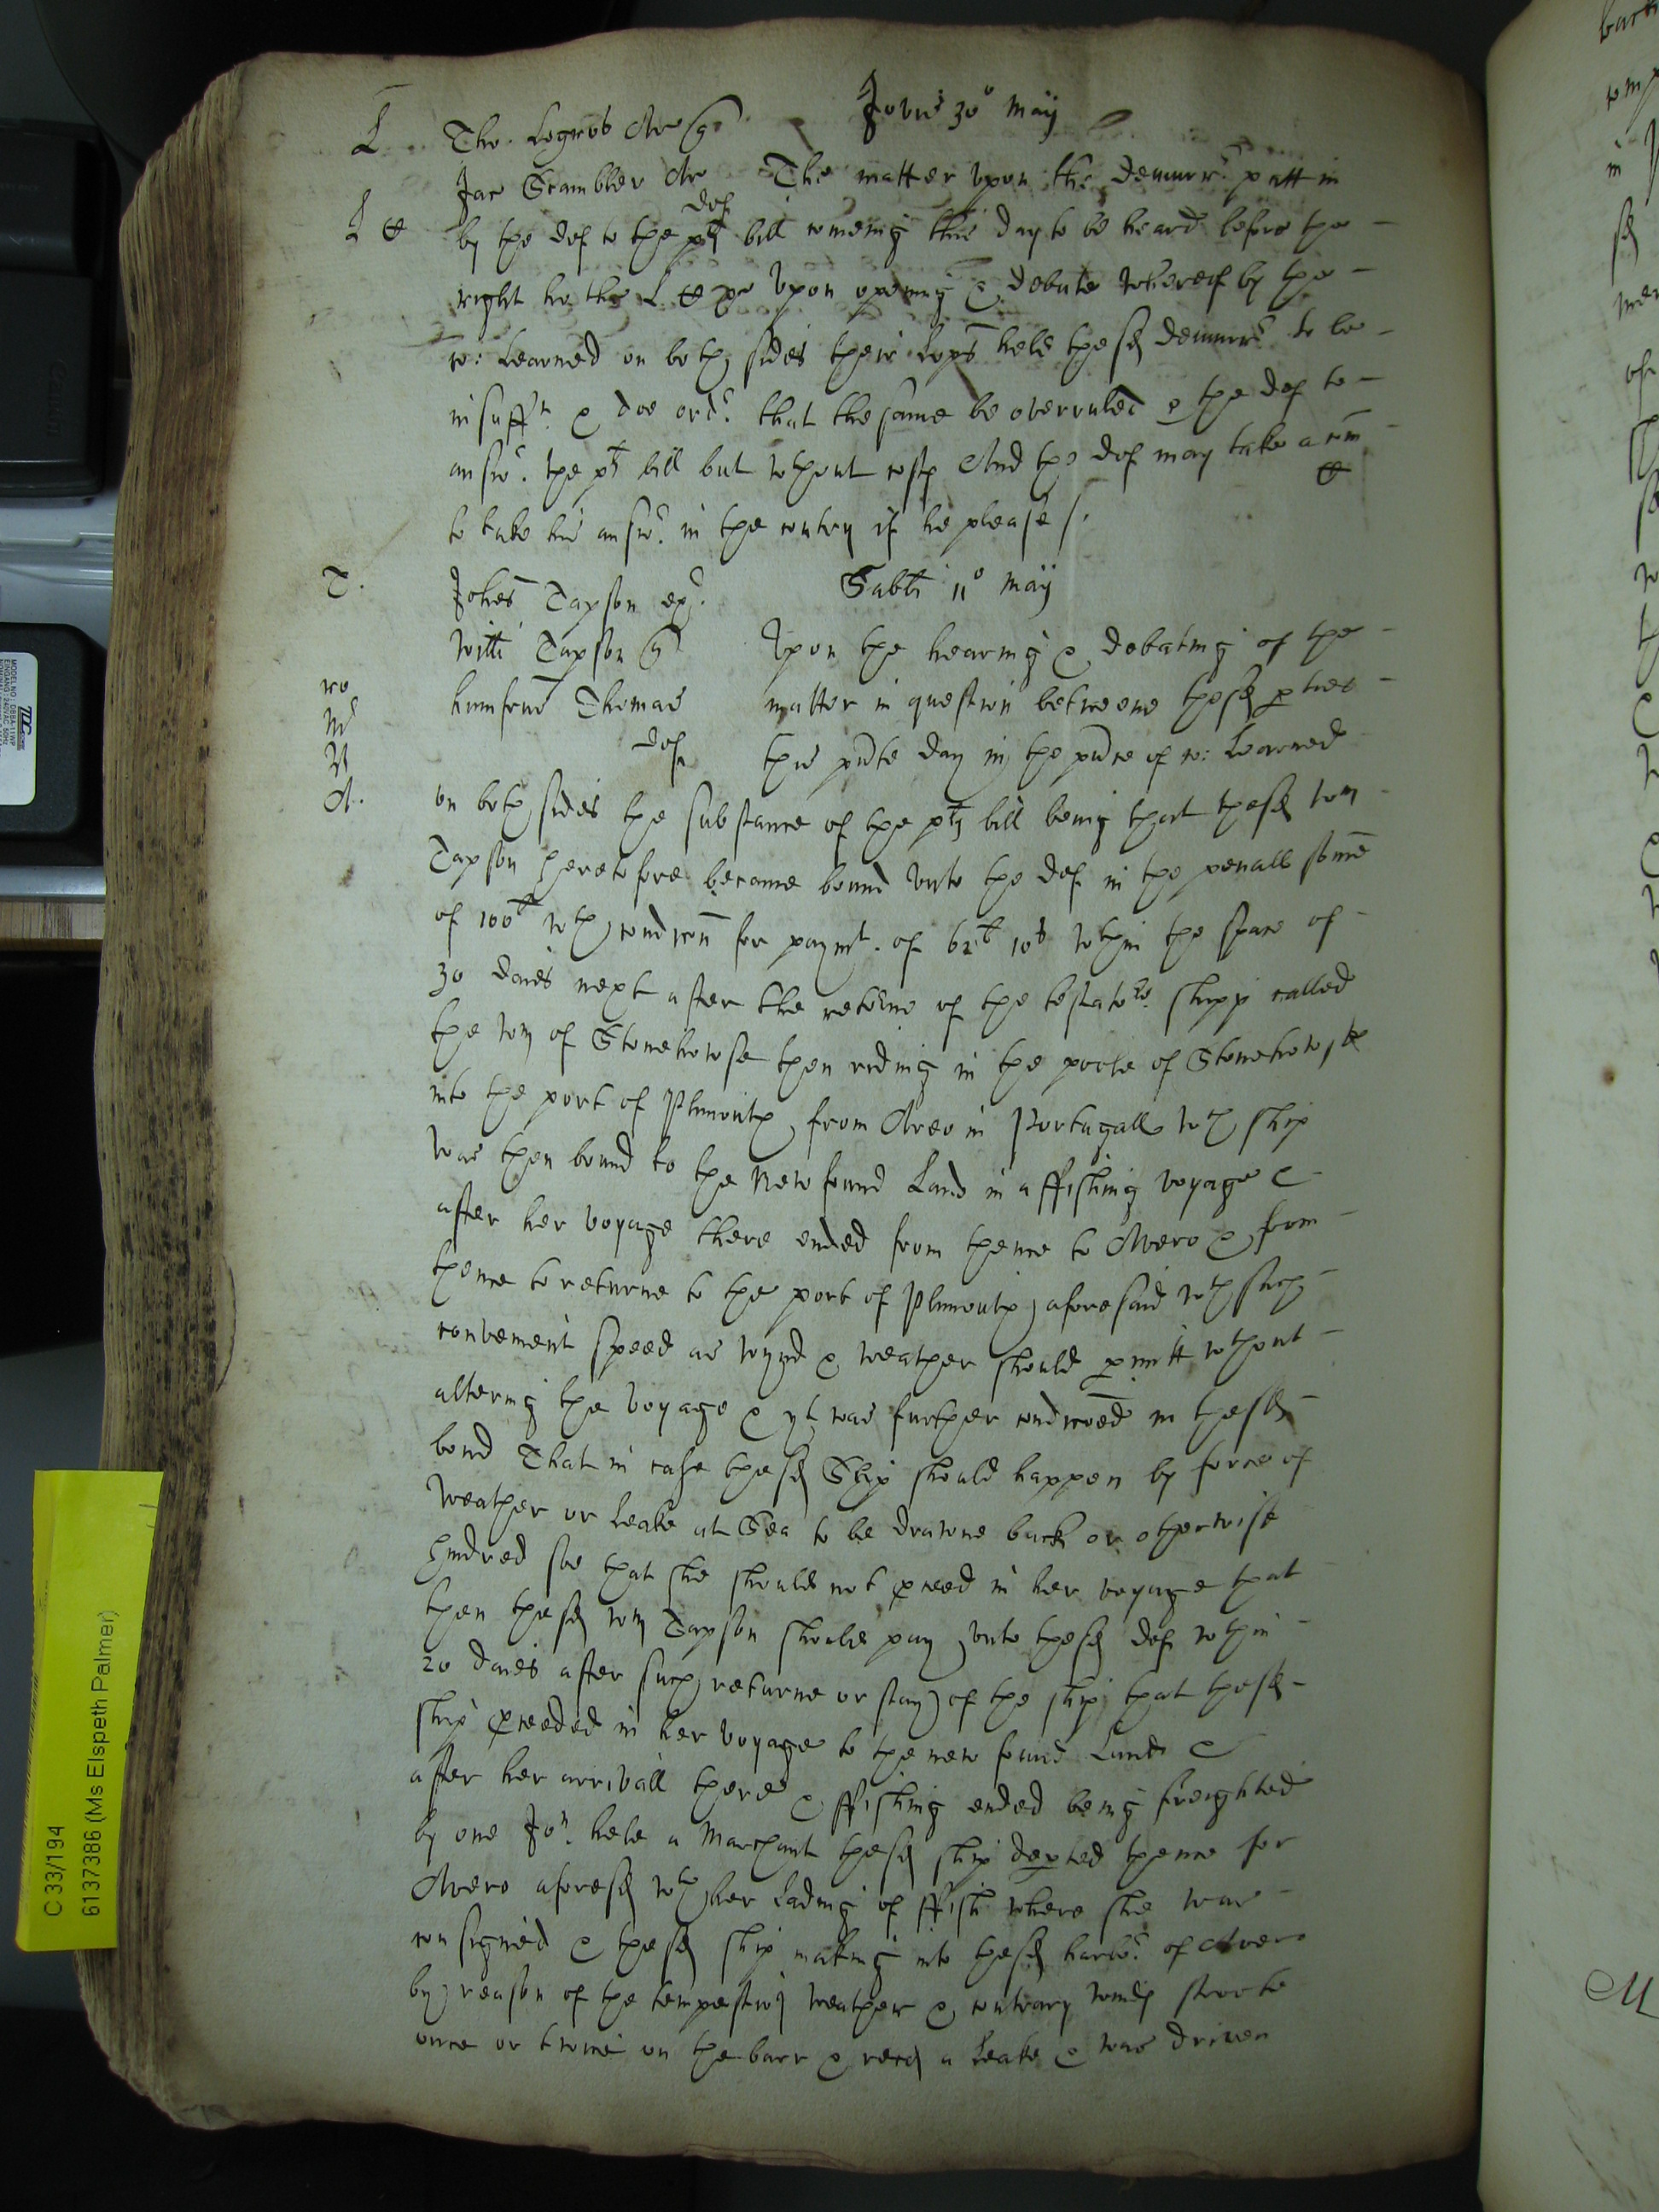 Jovis 30° Maij
L Tho. Legros Ar q
Jac Scambler Ar def The matter upon the demurr putt in
L C by the def to the plt bill comeing this day to be heard before the
right ho the L C &c Upon opening & debate whereof by the
co: Learned on both sides their Lops held the sd demurr to be
insufft & doe ord that the same be overruled & the def to
answ the plt bill but wthout costs And the def may take a com
to take his answ in the contry if he please
T. Johes Tapson ex Sabti 11° Maij
Willi Tapson q Upon the hearing & debating of the
co humfrus Thomas matter in question betweene the sd pties
def this pnte day in the pnce of co: Learned
A. on both sides the substance of the plts bill being that the sd Wm
Tapson heretofore became bound unto the def in the penall some
of 100li wth condicon for paymt of 62li 10s wthin the space of
30 daies next after the retorne of the testators shipp called
the Wm of Stonehowse then riding in the poole of Stonehowse
into the port of Plimouth from Avero in Portugall wch ship
was then bound to the New found Land in a ffishing voyage &
after her voyage there ended from thence to Avero & from
thence to returne to the port of Plimouth aforesaid wth such
convenient speed as wynd & weather should pmitt wthout
altering the voyage & yt was further condiconed in the sd
bond That in case the sd Ship should happen by force of
weather or leake at Sea to be drawne back or otherwise
hindred soe that she should not pceed in her voyage that
then the sd Wm Tapson should pay unto the sd def wthin
20 daies after such returne or stay of the ship that the sd
ship pceeded in her voyage to the new found Land &
after her arrivall there & ffishing ended being freighted
by one Jon. hele a Marchant the sd ship depted thence for
Avero aforesd wth her lading of ffish where she was
consigned & the sd ship making into the sd harbor of Avero
by reason of the tempestious weather & contrary winds strooke
once or twice on the barr & recd a leake & was driven
C 33/194
6137386 (Ms Elspeth Palmer)